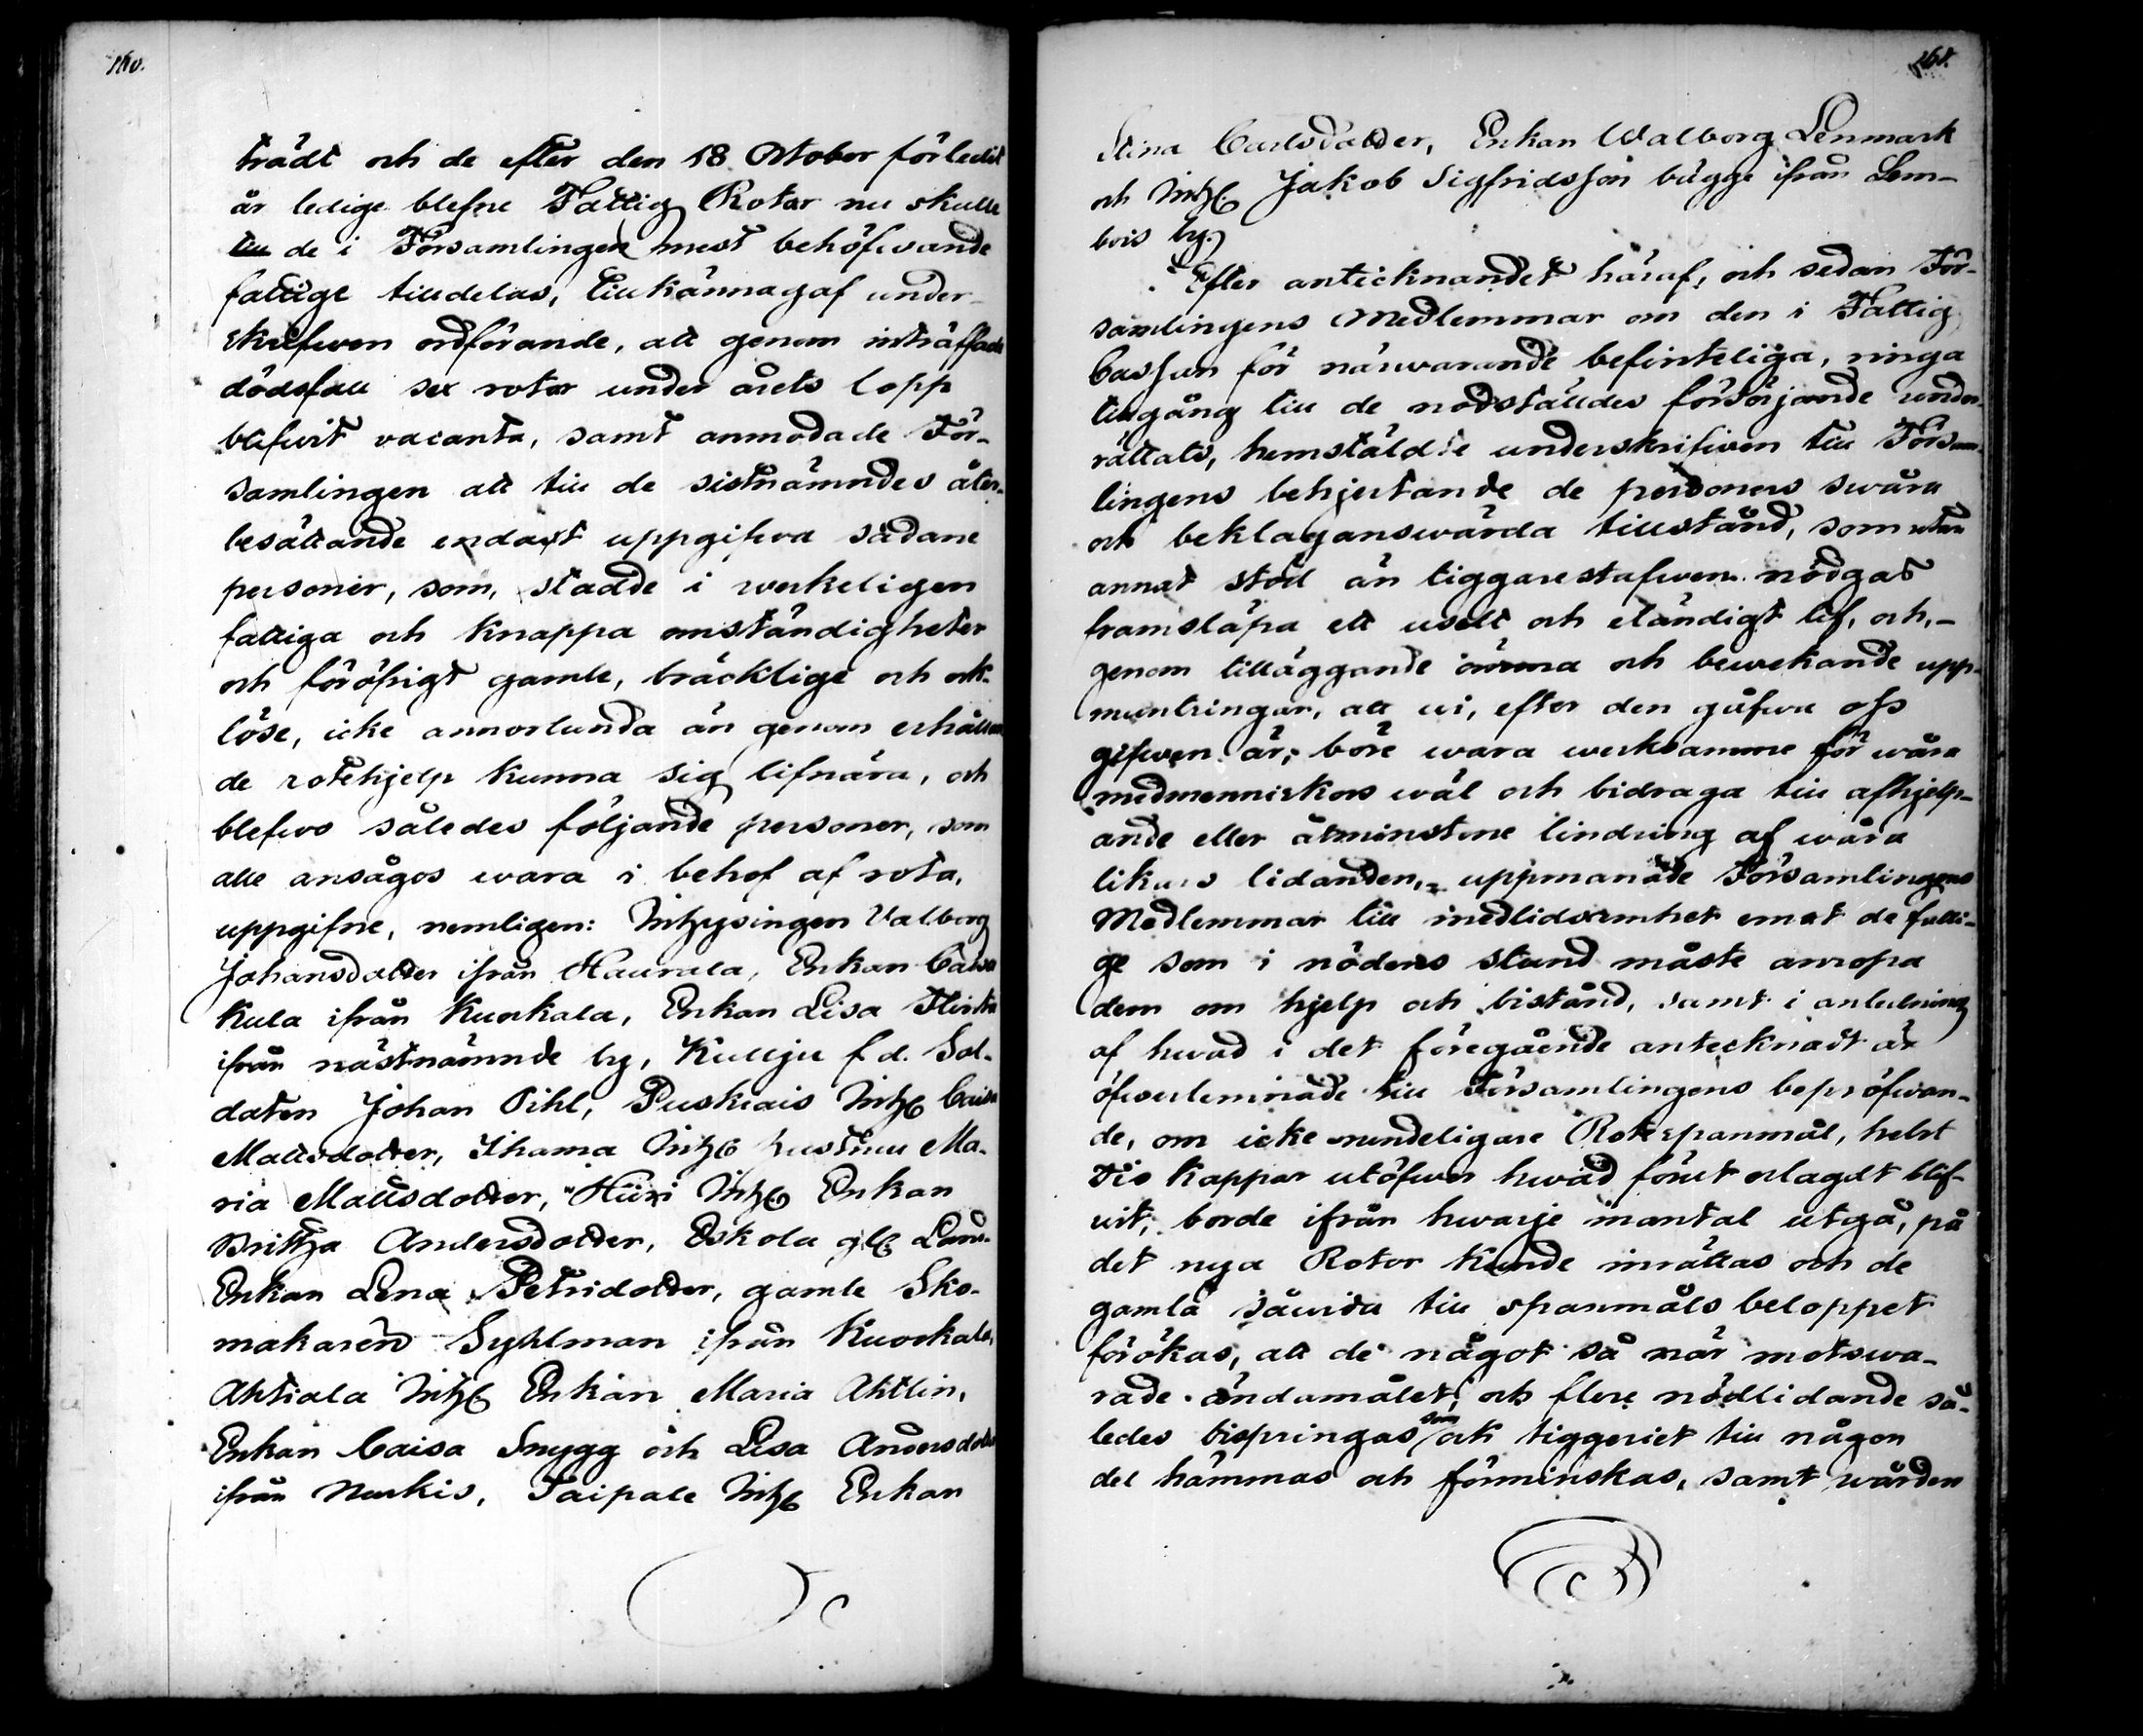 160.
trädt och de efter den 18 October förledit
år ledige blefne Fattig Rotar nu skulle
till de i Församlingen mest behöfwande
fattige tilldelas, tillkännagaf under-
skrefwen ordförande, att genom inträffade
dödsfall sex rotar under årets lopp
blifwit vacanta, samt anmodade För-
samlingen att till de sistnämndes åter-
besättande endast uppgifwa sådane
personer, som, stadde i werkeligen
fattiga och knappa omständigheter
och föröfrigt gamle, bräcklige och ork-
löse, icke annorlunda än genom erhållan
de rotehjelp kunna sig lifnära, och
blefwo således följande personer, som
alle ansågos wara i behof af rota,
uppgifne, nemligen: Inhysingen Valborg
Johansdotter ifrån Haurala, Enkan Caisa
Kula ifrån Kuokala, Enkan Lisa
ifrån nästnämnde by, Kullju f.d. Sol-
daten Johan Pihl, Puskiais Inhs Caisa
Mattsdotter, Ihama Inhs hustru Ma-
ria Mattsdotter, Hiiri Inhs Enkan
Brittha Andersdotter, Eskola gls Land.
Enkan Lena Petridotter, gamle Sko-
makaren Syhlman ifrån Kuokala,
Ahtiala Inhs Enkan Maria Ahtlin,
Enkan Caisa Snygg och Lisa Andersdotter
ifrån Narkis, Taipale Inhs Enkan
Stina Carlsdotter, Enkan Walborg Lenmark
och Inhs Jakob Sigfridsson bägge ifrån Lem-
bois by.
Efter antecknandet häraf, och sedan För-
samlingens Medlemmar om den i Fattig
Cassan för närwarande befinteliga, ringa
tillgång till de nödställdes försörjande under-
rättats, hemstälde underskrifwen till Försam-
lingens behjertande de personers swåra
och beklaganswärda tillstånd, som utan
annat stöd än tiggarestafwen nödgas
framsläpa ett uselt och eländigt lif, och,-
genom tilläggande ömma och bewekande upp-
muntringar, att wi, efter den gåfwa oss
gifwen är, böre wara werksamme för wåra
medmenniskors wäl och bidraga till afhjelp-
ande eller åtminstone lindring af wåra
likars lidanden, uppmanade Församlingens
Medlemmar till medlidsamhet emot de fatti-
ge som i nödens stund måste anropa
dem om hjelp och bistånd, samt i anledning
af hwad i det föregående antecknadt är
öfwerlemnade till Församlingens bepröfwan-
de, om icke rundeligare Rotespanmål, helst
tio kappar utöfwer hwad förut erlagdt blif-
wit, borde ifrån hwarje mantal utgå, på
det nya Rotor kunde inrättas och de
gamla såwida till spanmåls beloppet
förökas, att de något så när motswa-
rade ändamålet, och flere nödlidande så-
ledes bispringas som ock tiggeriet till någon
del hämmas och förminskas, samt wården